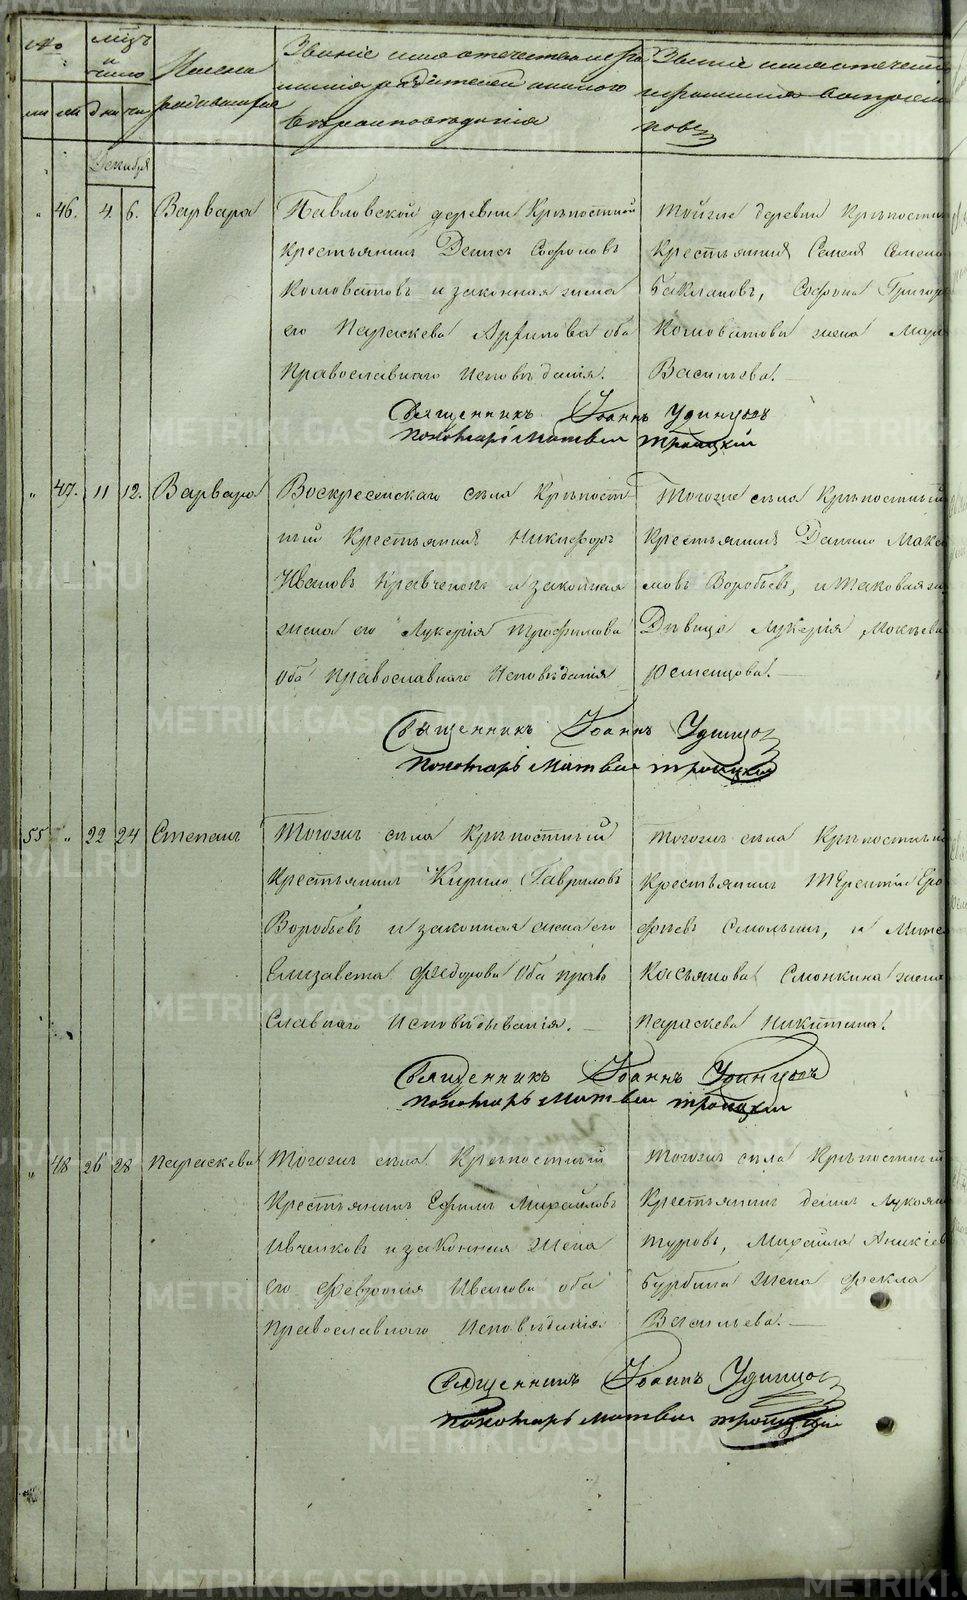 №
мцъ и число
Имена родившихся
Званіе имя отечество и фами
лія родителей и какого
вѣроисповѣданія
Званіе имя отечество
и фамилія воспріем
никовъ
Декабря
46. 4 6. Варвара
Павловской деревни Крѣпостной
Крестьянинъ Денисъ Софоновъ
Коловатовъ и законная жена
его Параскева Архипова оба
Православнаго Исповѣданія.
Тойже деревни Крѣпостный
Крестьянинъ Семенъ Семено
Баклановъ, Софона Григорь
Коловатова жена Марѳа
Васильева.
Священникъ Іоаннъ Удинцовъ
Пономарь Матвѣй Троицкій
47. 11 12. Варвара
Воскресенскаго села Крѣпост
ный Крестьянинъ Никифоръ
Ивановъ Кравченокъ и законная
жена его Лукерія Трофимова
Оба православнаго Исповѣданія
Тогоже села Крѣпостный
Крестьянинъ Данило Макси
мовъ Воробьевъ, и таковая же
Дѣвица Лукерія Мокѣева
Священникъ Іоаннъ Удинцов
Пономарь Матвѣй Троицкій
55 22 24 Степанъ
Тогожъ села Крѣпостный
Крестьянинъ Кирило Гавриловъ
Воробьевъ и законная жена его
Елизавета Федорова Оба право
славнаго Исповѣдыванія.
Тогожъ села Крѣпостный
Крестьянинъ Терентій Еро
фѣевъ Смолкинъ, и
Касьянова Смолкина жена
Параскева Никитина.
Священникъ Іоаннъ Удинцовъ
Пономарь Матвѣй Троицкій
48 26 28 Параскева
Тогожъ села Крѣпостный
Крестьянинъ Ефимъ Михайловъ
Ивченковъ и законная жена
его Февронія Иванова оба
Православнаго Исповѣданія
Тогожъ села Крѣпостный
Крестьянинъ
туровъ, Михайла Аникіев
Бурбина жена Фекла
Васильева.
Священникъ Іоаннъ Удинцов
Пономарь Матвѣй Троицкій
METRIKI.GASO-URAL.RU